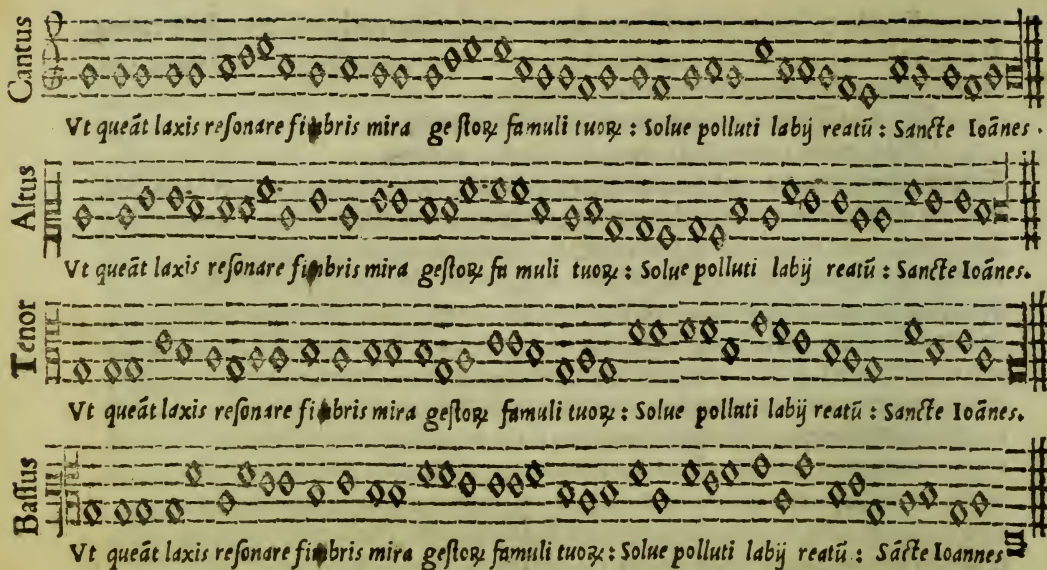 Cantus
Vt queāt laxis reſonare fibris mira geſtoꝝ famuli tuoꝝ : Solue polluti labij reatū : Sancte Ioānes .
Altus
Vt queāt laxis reſonare fibris mira geſtoꝝ fa muli tuoꝝ : Solue polluti labij reatū : Sancte Ioānes.
Tenor
Vt queāt laxis reſonare fibris mira geſtoꝝ famuli tuoꝝ : Solue polluti labij reatū : Sancte Ioānes.
Baſſus
Vt queāt laxis reſonare fibris mira geſtoꝝ famuli tuoꝝ : Solue polluti labij reatū : Sācte Ioannes